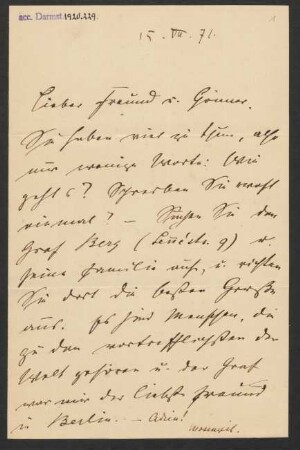 acc. Darmst. 1920.229.
1
15. VII. 71.
Lieber Freund u. Gönner.
Sie haben viel zu thun, also
nur wenige Worte: Wie
geht's? Schreiben Sie wohl
einmal? — Suchen Sie den
Graf Berg (Linnéstr. 9) u.
seine Familie auf, u. richten
Sie dort die besten Grüße
aus. Es sind Menschen, die
zu den vortrefflichsten der
Welt gehören u. der Graf
war mir der liebste Freund
in Berlin. — Adieu!